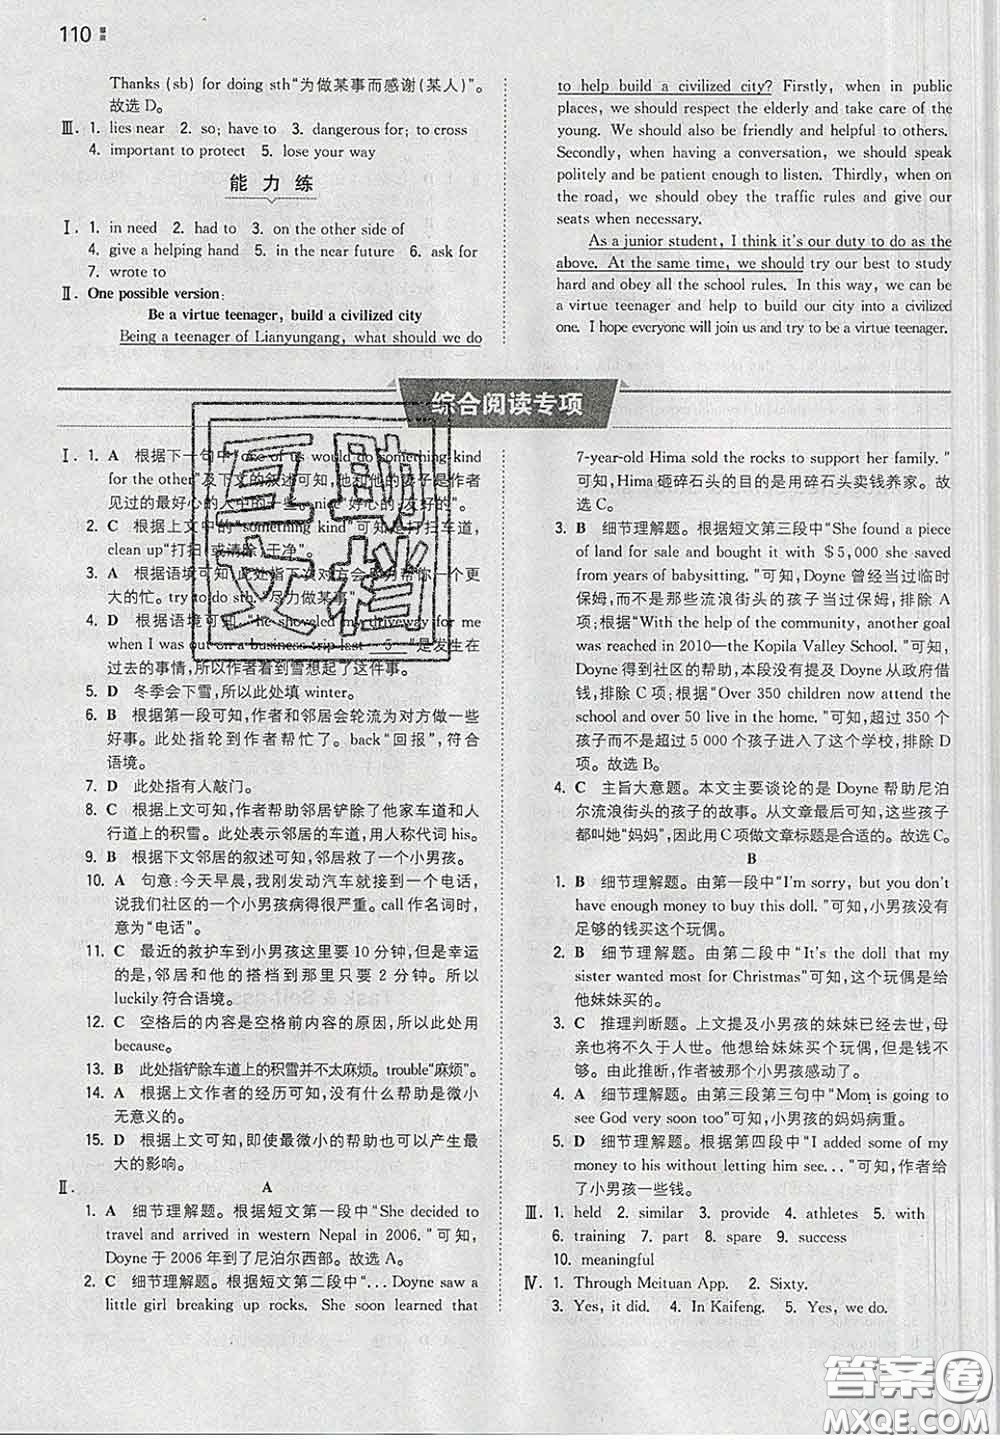 110
Thanks (sb) for doing sth“为做某事而感谢(某人)”。
故选 D。
Ⅲ. 1. lies near 2. so; have to 3. dangerous for; to cross
4. important to protect 5. lose your way
能力练
Ⅰ. 1. in need 2. had to 3. on the other side of
4. give a helping hand 5. in the near future 6. ask for
7. wrote to
Ⅱ. One possible version:
Be a virtue teenager, build a civilized city
Being a teenager of Lianyungang, what should we do
to help build a civilized city? Firstly, when in public
places, we should respect the elderly and take care of the
young. We should also be friendly and helpful to others.
Secondly, when having a conversation, we should speak
politely and be patient enough to listen. Thirdly, when on
the road, we should obey the traffic rules and give our
seats when necessary.
As a junior student, I think it's our duty to do as the
above. At the same time, we should try our best to study
hard and obey all the school rules. In this way, we can be
a virtue teenager and help to build our city into a civilized
one. I hope everyone will join us and try to be a virtue teenager.
综合阅读专项
Ⅰ. 1. A 根据下一句中“one of us would do something kind
for the other”及下文的叙述可知,他和他的妻子是作者
见过的最好心的人中的一些。nice“好心的,友好的”。
2. C 根据上文中的“something kind”可知是打扫车道,
clean up“打扫(或清除)干净”。
3. A 根据语境可知,此处指下次对方会努力帮你一个更
大的忙。try to do sth“尽力做某事”。
4. D 根据语境可知“he shoveled my driveway for me
when I was out on a business trip last 5 ”是发生在
过去的事情,所以作者看到雪想起了这件事。
5. D 冬季会下雪,所以此处填 winter。
6. B 根据第一段可知,作者和邻居会轮流为对方做一些
好事。此处指轮到作者帮忙了。back“回报”,符合
语境。
7. D 此处指有人敲门。
8. C 根据上文可知,作者帮助邻居铲除了他家车道和人
行道上的积雪。此处表示邻居的车道,用人称代词 his。
9. B 根据下文邻居的叙述可知,邻居救了一个小男孩。
10. A 句意:今天早晨,我刚发动汽车就接到一个电话,
说我们社区的一个小男孩病得很严重。call 作名词时,
意为“电话”。
11. C 最近的救护车到小男孩这里要 10 分钟,但是幸运
的是,邻居和他的搭档到那里只要 2 分钟。所以
luckily 符合语境。
12. C 空格后的内容是空格前内容的原因,所以此处用
because。
13. B 此处指铲除车道上的积雪并不太麻烦。trouble“麻烦”。
14. A 根据上文作者的经历可知,没有什么帮助是微小
无意义的。
15. D 根据上文可知,即使最微小的帮助也可以产生最
大的影响。
Ⅱ. A
1. A 细节理解题。根据短文第一段中“She decided to
travel and arrived in western Nepal in 2006.”可知,
Doyne 于 2006 年到了尼泊尔西部。故选 A。
2. C 细节理解题。根据短文第二段中“... Doyne saw a
little girl breaking up rocks. She soon learned that
7-year-old Hima sold the rocks to support her family.”
可知,Hima 砸碎石头的目的是用碎石头卖钱养家。故
选 C。
3. B 细节理解题。根据短文第三段中“She found a piece
of land for sale and bought it with $5,000 she saved
from years of babysitting.”可知,Doyne 曾经当过临时
保姆,而不是给那些流浪街头的孩子当过保姆,排除 A
项;根据“With the help of the community, another goal
was reached in 2010—the Kopila Valley School.”可知,
Doyne 得到社区的帮助,本段没有提及 Doyne 从政府借
钱,排除 C 项;根据“Over 350 children now attend the
school and over 50 live in the home.”可知,超过 350 个
孩子而不是超过 5 000 个孩子进入了这个学校,排除 D
项。故选 B。
4. C 主旨大意题。本文主要谈论的是 Doyne 帮助尼泊
尔流浪街头的孩子的故事。从文章最后可知,这些孩子
都叫她“妈妈”,因此用 C 项做文章标题是合适的。故选 C。
B
1. B 细节理解题。由第一段中“I'm sorry, but you don't
have enough money to buy this doll.”可知,小男孩没有
足够的钱买这个玩偶。
2. B 细节理解题。由第二段中“It's the doll that my
sister wanted most for Christmas”可知,这个玩偶是给
他妹妹买的。
3. C 推理判断题。上文提及小男孩的妹妹已经去世,母
亲也将不久于人世。他想给妹妹买个玩偶,使她开心起
来。由此推断,作者被这个小男孩感动了。
4. A 细节理解题。由第三段第三句中“Mom is going to
see God very soon too”可知,小男孩的妈妈病重。
5. D 细节理解题。根据第四段中“I added some of my
money to his without letting him see...”可知,作者给
了小男孩一些钱。
Ⅲ. 1. held 2. similar 3. provide 4. athletes 5. with
6. training 7. part 8. spare 9. success
10. meaningful
Ⅳ. 1. Through Meituan App. 2. Sixty.
3. Yes, it did. 4. In Kaifeng. 5. Yes, we do.
互助
文档
答案圈
MXQE.COM